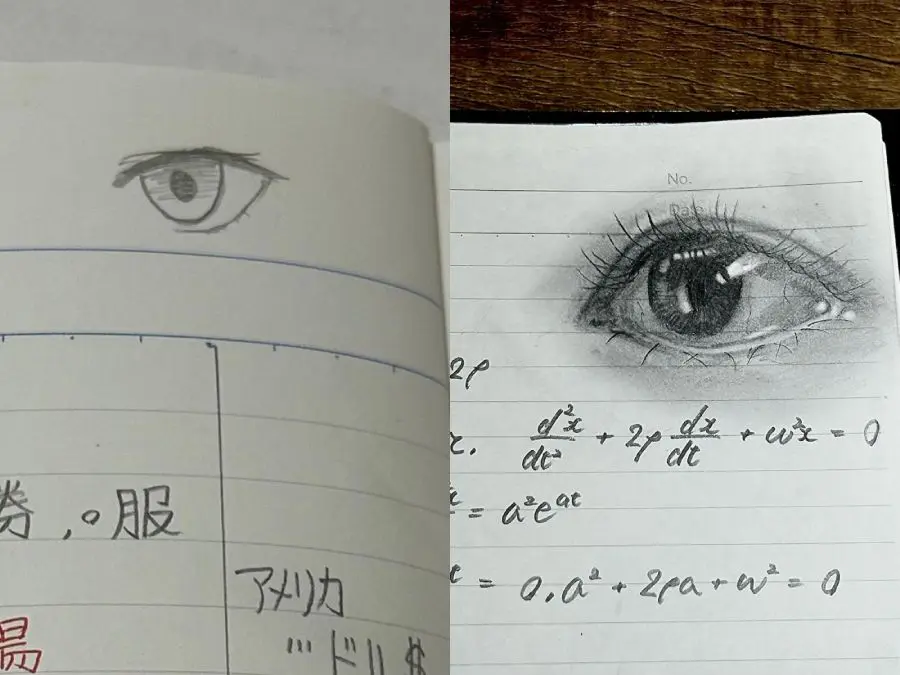 服
アメリカ
ドル $
No.
Date
2ρ
d²x/dt² + 2ρ dx/dt + ω²x = 0
= a²eᵃᵗ
= 0, a² + 2ρa + ω² = 0